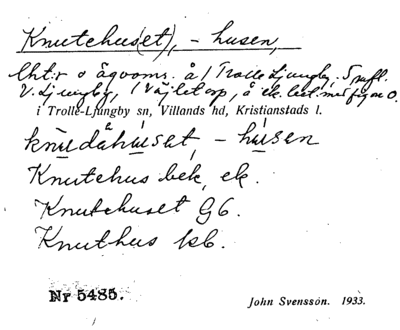 Knutehus(et), - husen,
Lht:r o ägooms. å 1 Trolle Ljungby. Spr. fl.
V. Ljungby, 1 Väjletorp, å ek. bect. med fig av O.
i Trolle-Ljungby sn, Villands hd, Kristianstads l.
knudåhuset, - husen
Knutehus bek, ek.
Knutehuset G6.
Knuthus kb.
Nr 5485.
John Svensson. 1933.